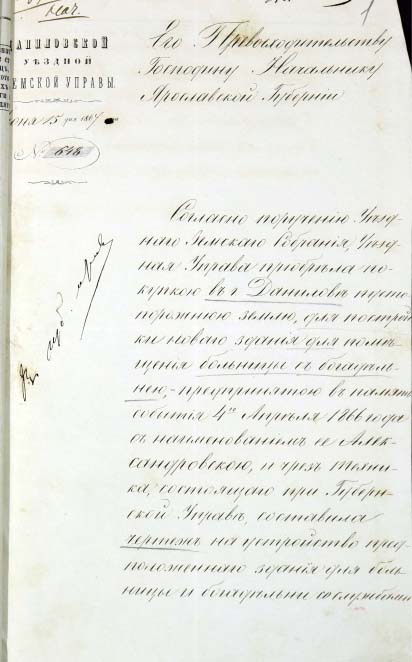 1
ДАНИЛОВСКОЙ
УѢЗДНОЙ
ЗЕМСКОЙ УПРАВЫ.
15 дня 1867
№ 648
Его Превосходительству
Господину Начальнику
Ярославской Губерніи
Согласно порученію Уѣзд
наго Земскаго Собранія, Уѣзд
ная Управа пріобрѣла по
купкою въ г. Даниловѣ пусто
порожнюю землю, для построй
ки новаго зданія для помѣ
щенія больницы съ богадѣль
нею, предпринятою въ память
событія 4го Апрѣля 1866 года
съ наименованіемъ ее Алек
сандровскою, и чрезъ техни
ка, состоящаго при Губерн
ской Управѣ, составила
чертежъ на устройство пред
положеннаго зданія для боль
ницы и богадѣльни со службами